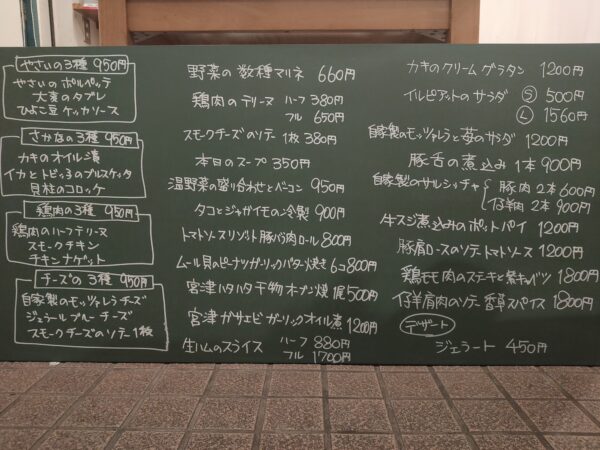 やさいの3種 950円
やさいのポルペッテ
大麦のタブレ
ひよこ豆ケッカソース
さかなの3種 950円
カキのオイル漬
イカとトビッコのブルスケッタ
貝柱のコロッケ
鶏肉の3種 950円
鶏肉のハーフテリーヌ
スモークチキン
チキンナゲット
チーズの3種 950円
自家製のモッツァレラチーズ
ジェラールブルーチーズ
スモークチーズのソテー1枚
野菜の数種マリネ 660円
鶏肉のテリーヌ ハーフ 380円
フル 650円
スモークチーズのソテー 1枚 380円
本日のスープ 350円
温野菜の盛り合わせとベーコン 950円
タコとジャガイモの冷製 900円
トマトソースリゾット豚バラ肉ロール 800円
ムール貝のピーナッツガーリックバター焼き 6コ 800円
宮津ハタハタ干物オーブン焼 1尾 500円
宮津ガサエビガーリックオイル煮 1200円
生ハムのスライス ハーフ 880円
フル 1700円
カキのクリームグラタン 1200円
イルピアットのサラダ Ⓢ 500円
Ⓛ 1560円
自家製のモッツァレラと苺のサラダ 1200円
豚舌の煮込み 1本 900円
自家製のサルシッチャ 豚肉 2本 600円
仔羊肉 2本 900円
牛スジ煮込みのポットパイ 1200円
豚肩ロースのソテートマトソース 1200円
鶏モモ肉のステーキと紫キャベツ 1800円
仔羊肩肉のソテー 香草スパイス 1800円
デザート
ジェラート 450円